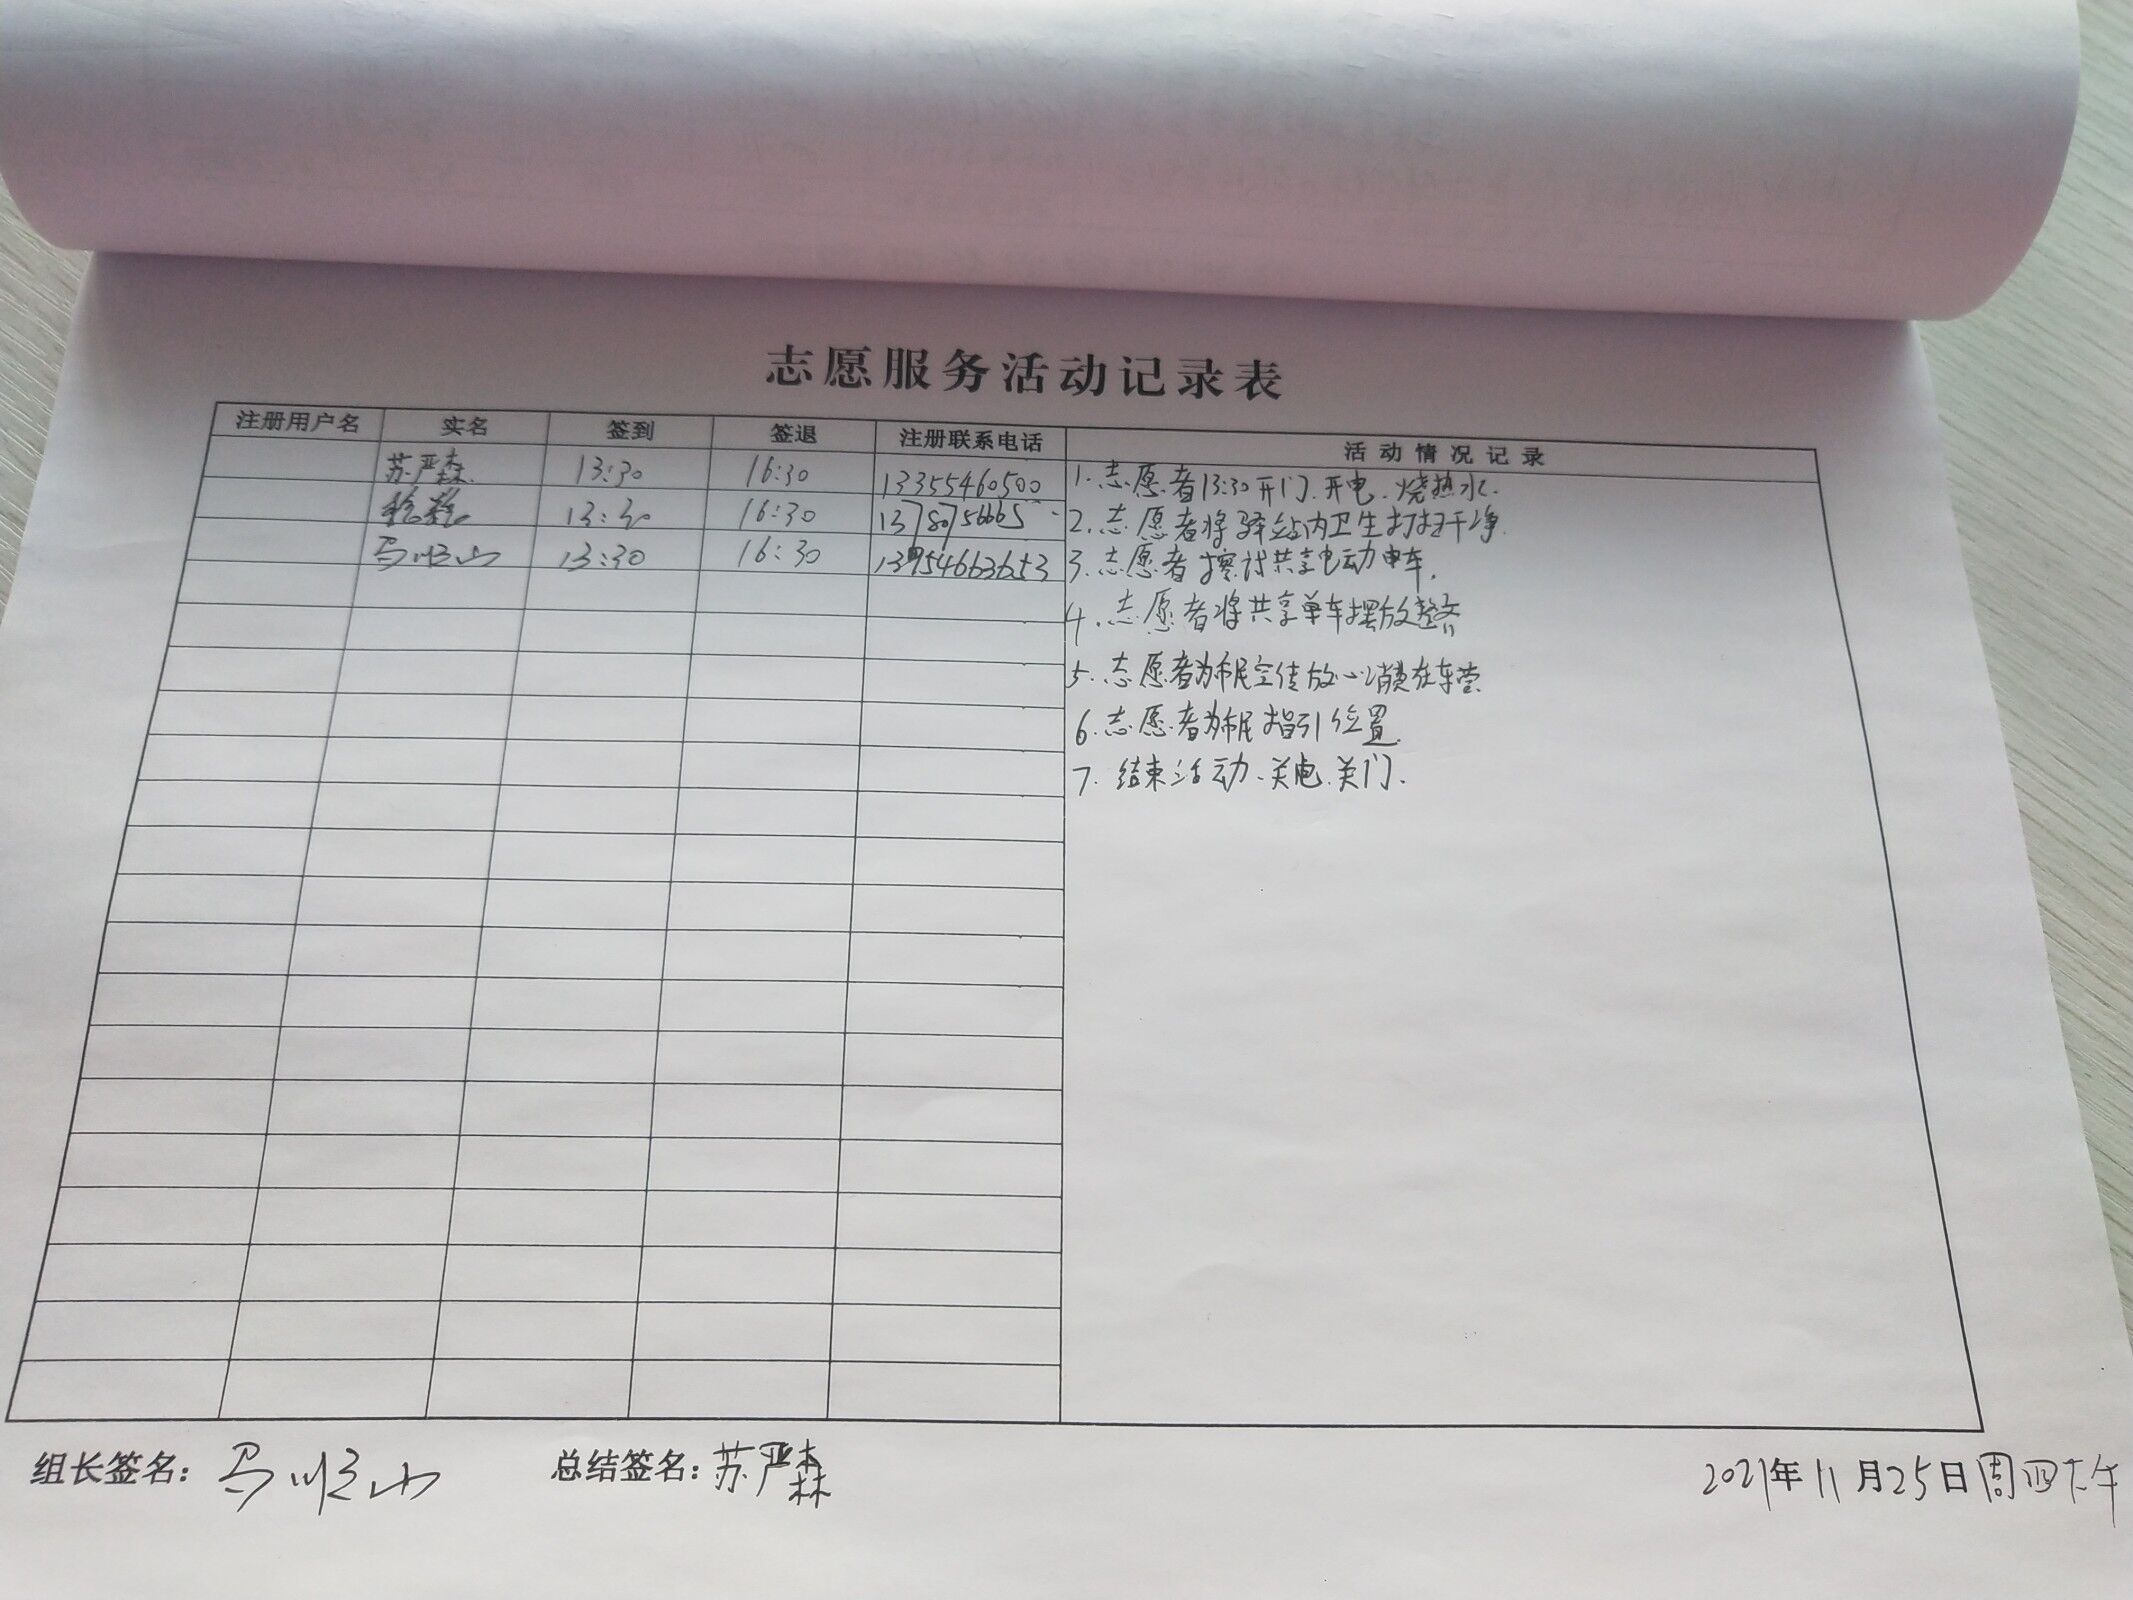 志愿服务活动记录表
注册用户名 实名 签到 签退 注册联系电话 活动情况记录
苏严森 13:30 16:30 13355460500
13:30 16:30 13780756665
马顺山 13:30 16:30 13954663653
1.志愿者13:30开门.开电.烧热水.
2.志愿者将驿站内卫生打扫干净.
3.志愿者擦拭共享电动单车.
4.志愿者将共享单车摆放整齐
5.志愿者为市民宣传放心消费在东营.
6.志愿者为市民指引位置.
7.结束活动、关电.关门.
组长签名:马顺山 总结签名:苏严森 2021年11月25日周四下午